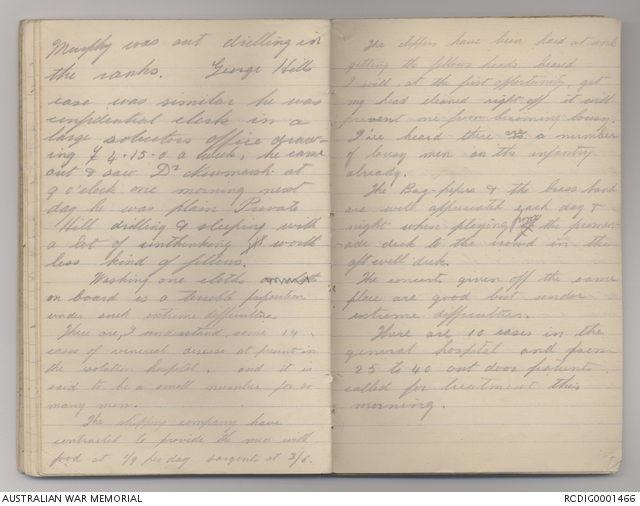 Murphy was out drilling in
the ranks. George Hills
case was similar he was
confidential clerk in a
large solicitors office draw-
ing £4.15.0 a week, he came
out & saw Dr at
9 o'clock one morning next
day he was plain Private
Hill drilling & sleeping with
a lot of unthinking worth
less kind of fellows.
Washing one cloths
on board is a terrible proposition
under such extreme difficulties.
There are, I understand, some 14
cases of venereal disease at present in
the isolation hospital, and it is
said to be a small number for so
many men.
The shipping company have
contracted to provide the men with
food at 1/9 per day sargents at 3/6.
The clippers have been hard at work
getting the fellows heads
I will, at the first opportunity, get
my head cleaned right off it will
prevent me from becoming lousy.
I've heard there are a number
of lousy men in the infantry
already.
The Bag-pipes & the brass band
are well appreciated each day &
night when playing from the promen-
ade deck to the crowd in the
aft well deck.
The concerts given off the same
place are good but under
extreme difficulties.
There are 10 cases in the
general hospital and from
25 to 40 out door patients
called for treatment this
morning.
AUSTRALIAN WAR MEMORIAL
RCDIG0001466